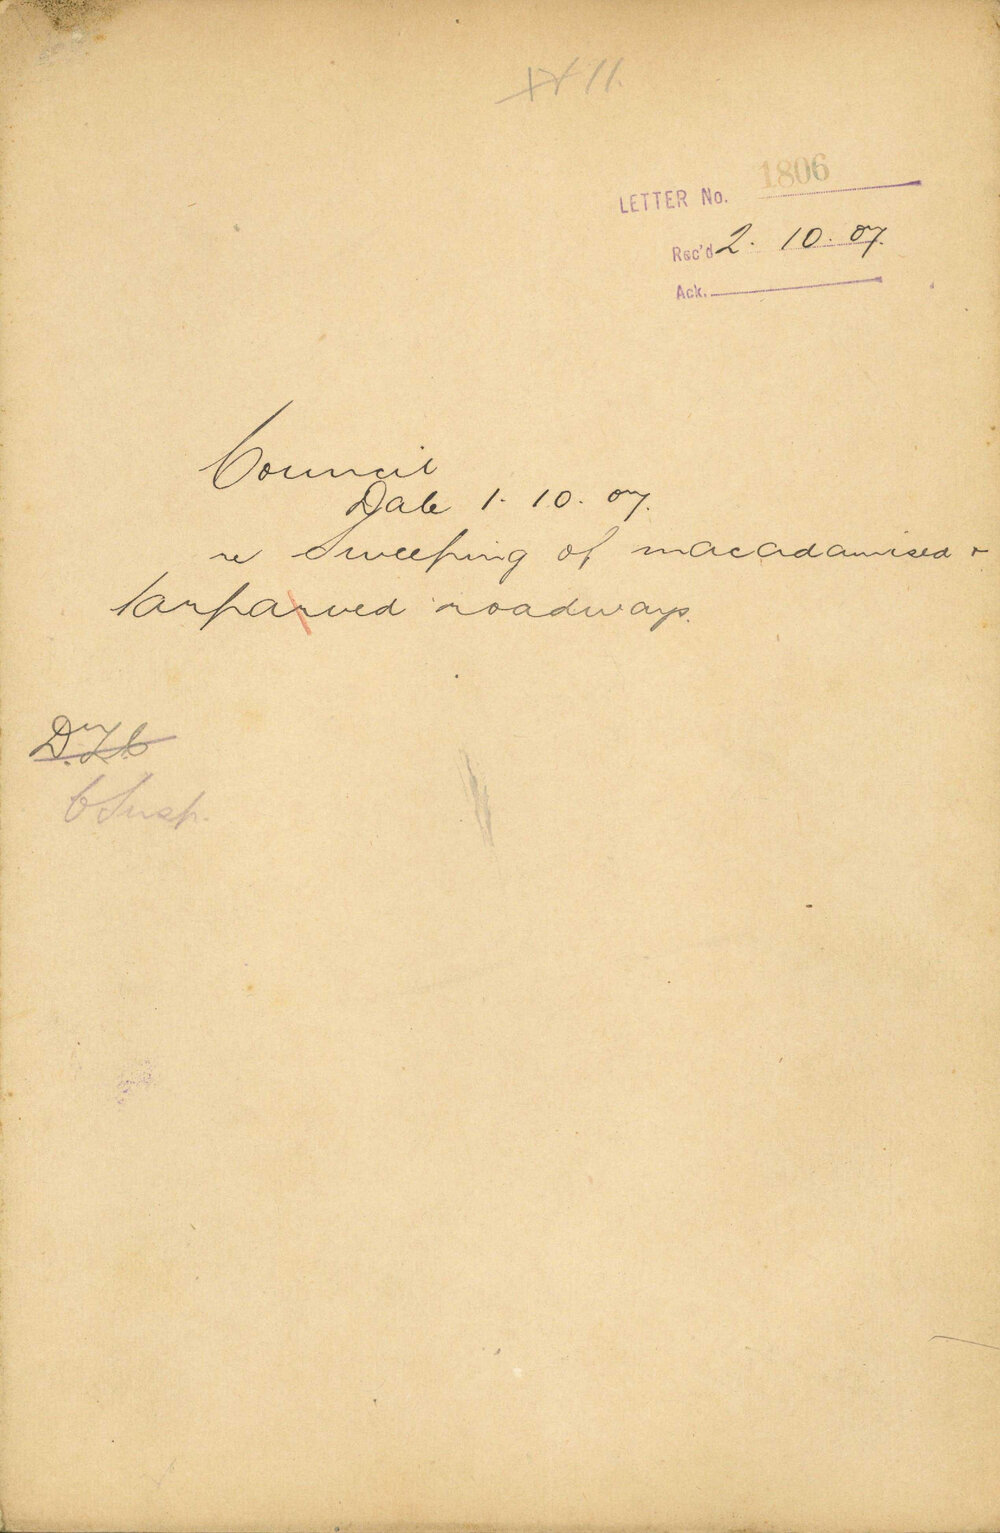 XVII.
LETTER No. 1806
Rec'd 2. 10. 07.
Ack.
Council
Date 1. 10. 07.
re Sweeping of macadamised &
tarparved roadways.
C Insp.